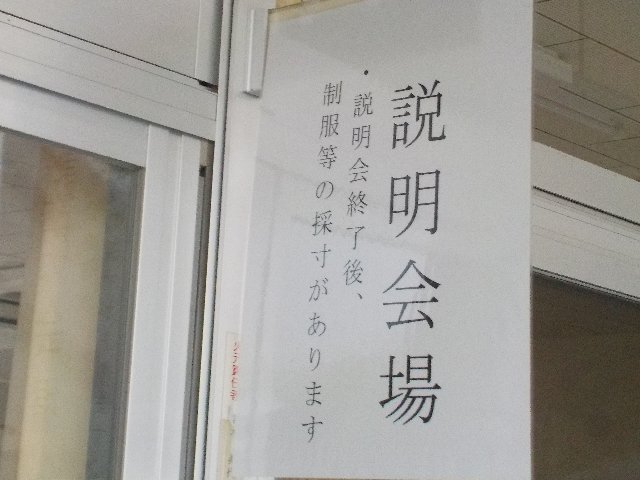 説明会場
・説明会終了後、
制服等の採寸があります